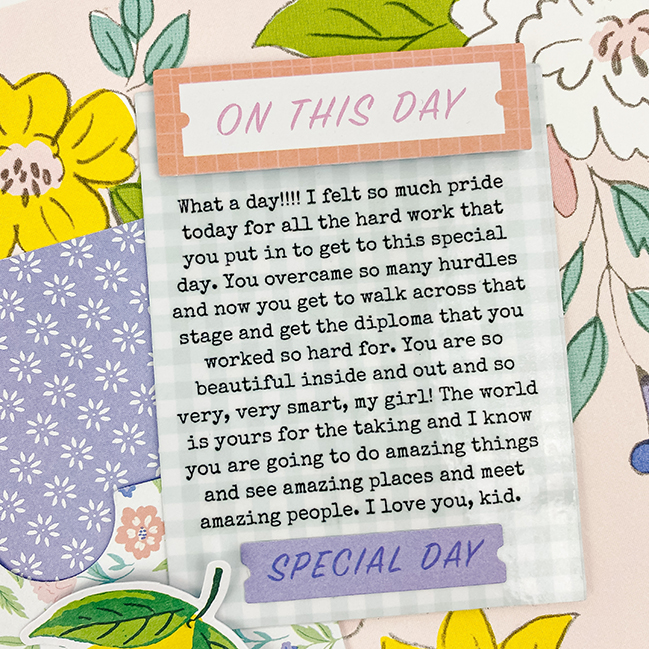 ON THIS DAY
What a day!!!! I felt so much pride
today for all the hard work that
you put in to get to this special
day. You overcame so many hurdles
and now you get to walk across that
stage and get the diploma that you
worked so hard for. You are so
beautiful inside and out and so
very, very smart, my girl! The world
is yours for the taking and I know
you are going to do amazing things
and see amazing places and meet
amazing people. I love you, kid.
SPECIAL DAY